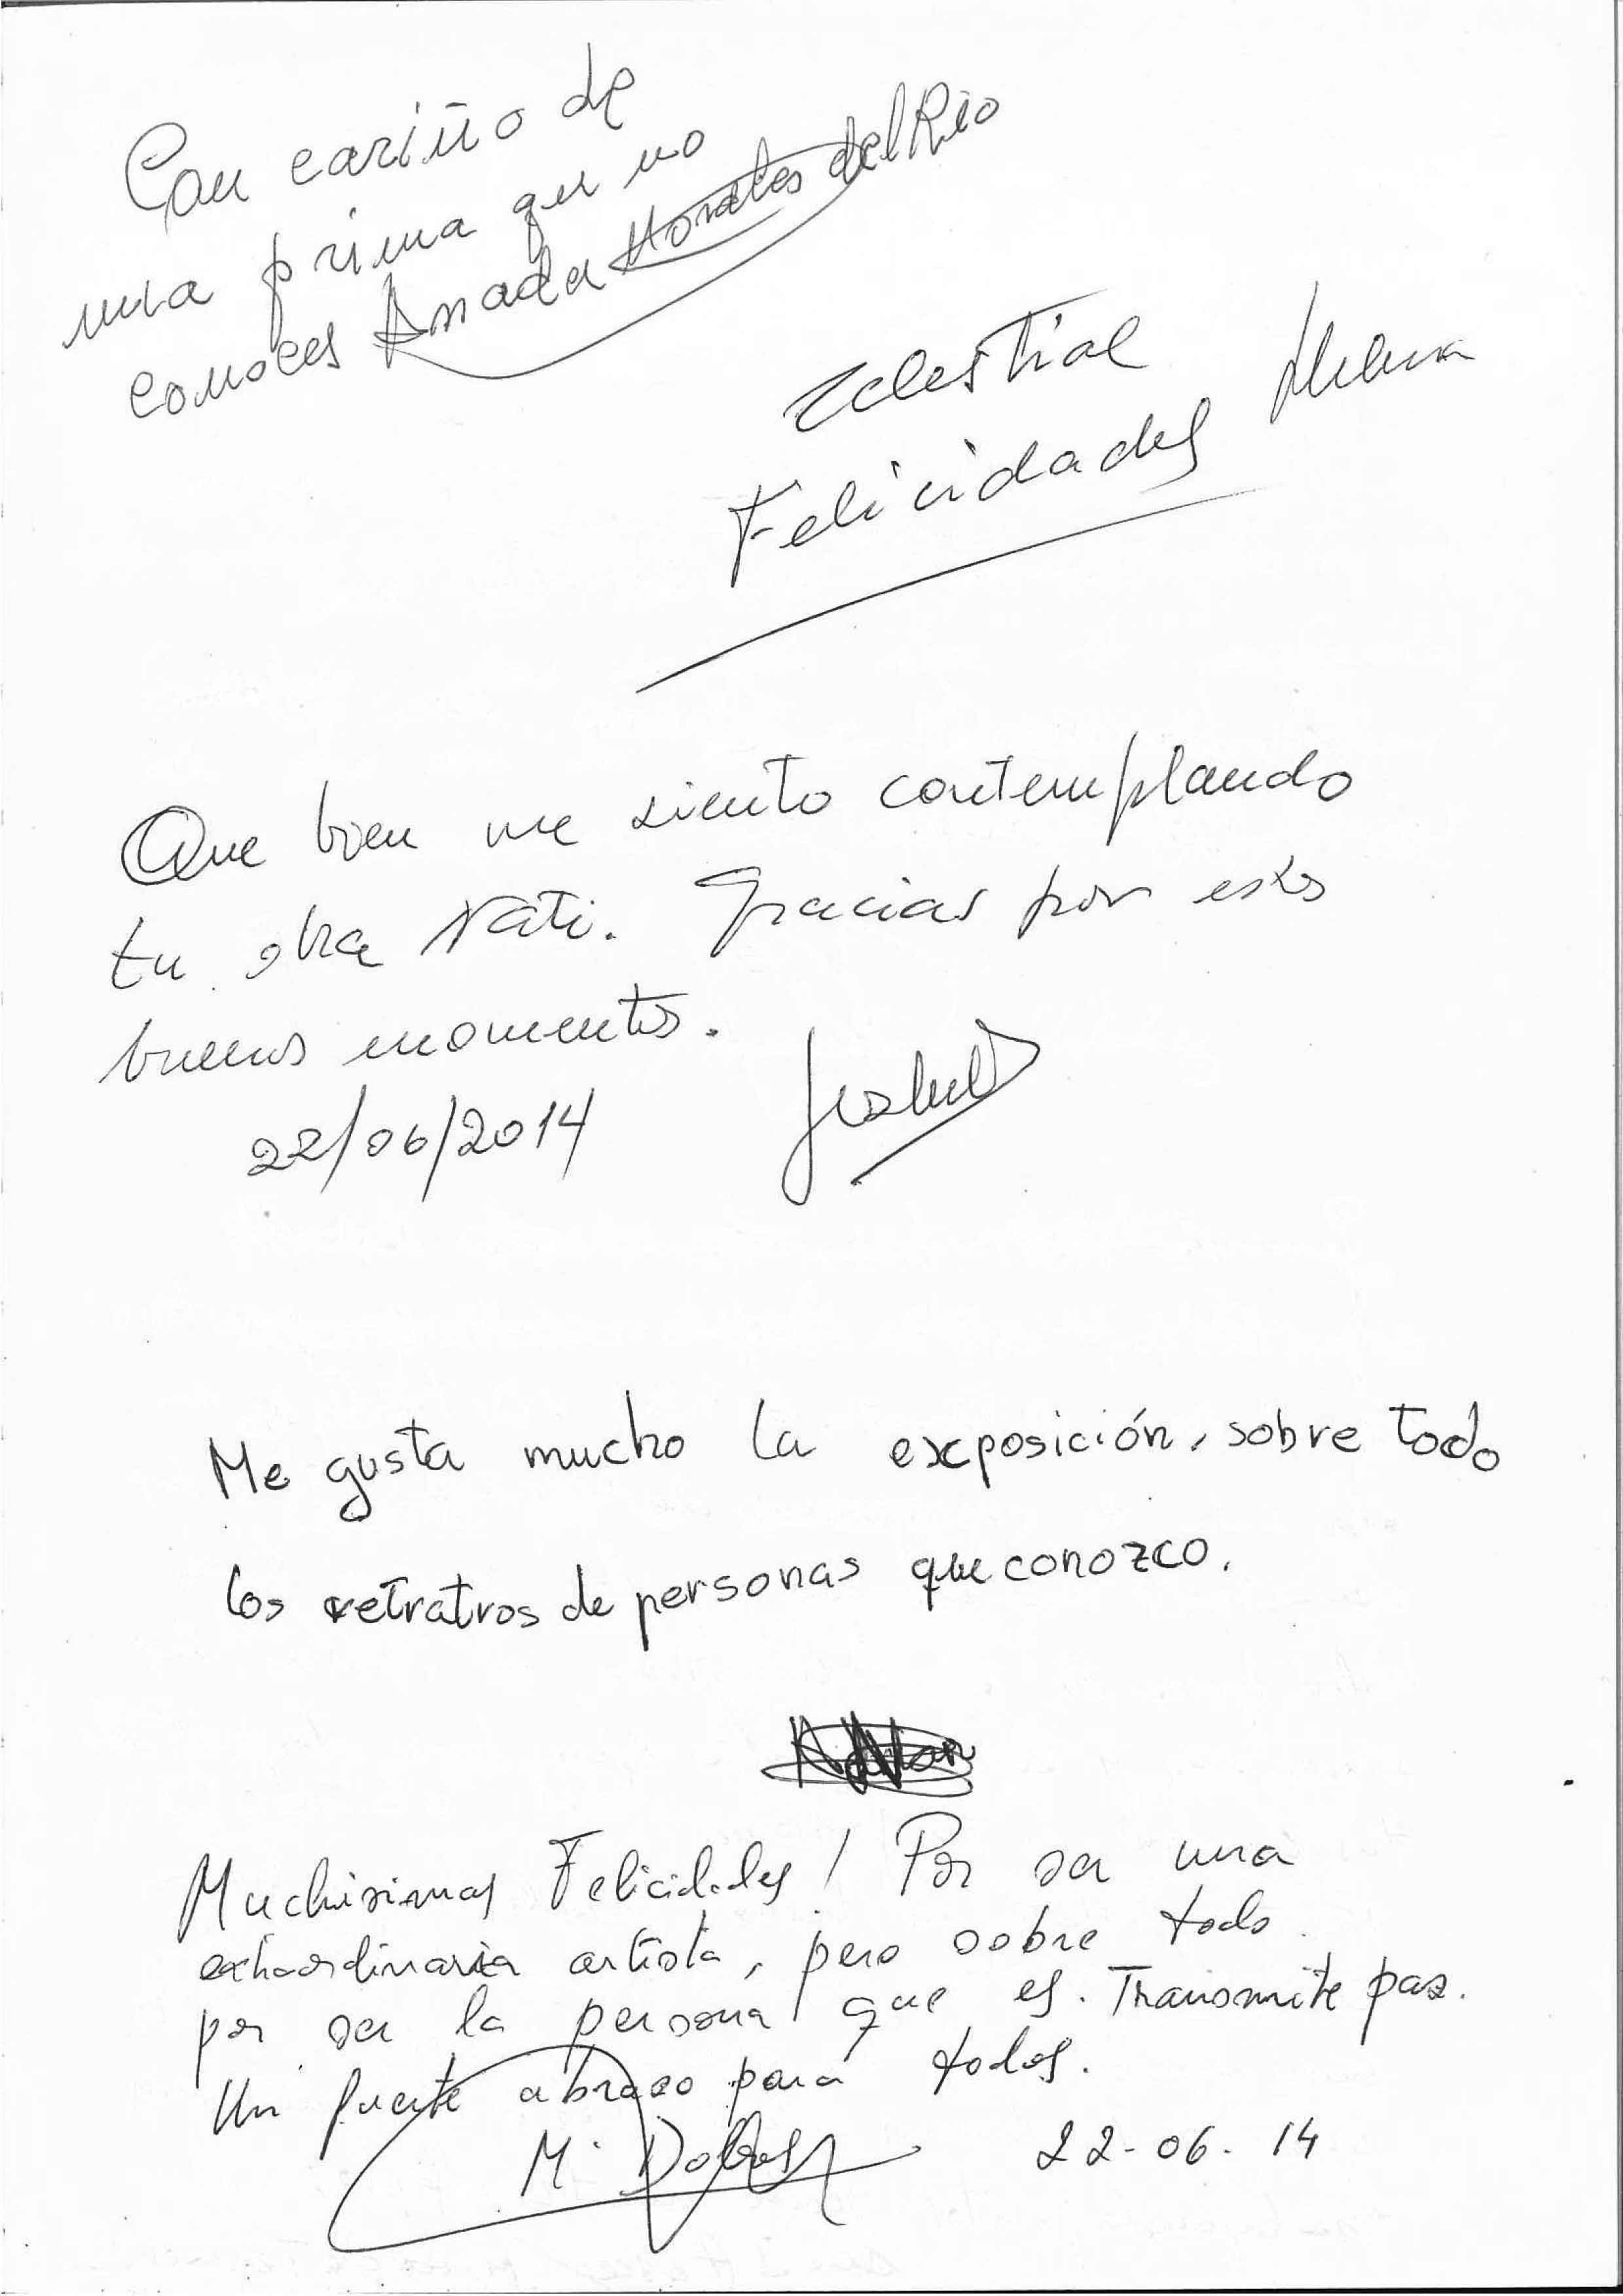 Con cariño de
una prima que no
conoces Amada Morales del Rio
Celestial
Felicidades
Que bien me siento contemplando
tu obra Nati. Gracias por estos
buenos momentos.
22/06/2014 Isabel
Me gusta mucho la exposición, sobre todo
los retratros de personas que conozco.
Muchisimas Felicidades! Por ser una
extraordinaria artista, pero sobre todo
por ser la persona que es. Transmite paz.
Un fuerte abrazo para todos.
Mª Dolores 22-06-14